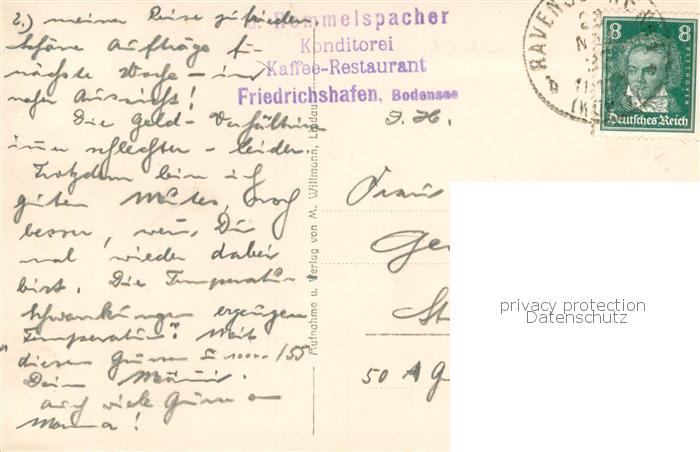 2.) meiner Reise zufrieden
schöne Aufträge f.
nächste Woche - in
naher Aussicht!
Die Geld-Verhältn
immer schlechter - leider.
Trotzdem bin ich
guten Mutes, noch
besser, wenn Du
mal wieder dabei
bist. Die Temperatur
Schwankungen erzeugen
"Temperatur". Mit
diesen Grüssen
Dein Männi.
auch viele Grüsse an
Mama!
Rommelspacher
Konditorei
Kaffee-Restaurant
Friedrichshafen, Bodensee
RAVENSBURG
8 8
Deutsches Reich
Aufnahme u. Verlag von M. Willmann, Lindau
Frau
Ge
St
50 A G
privacy protection
Datenschutz